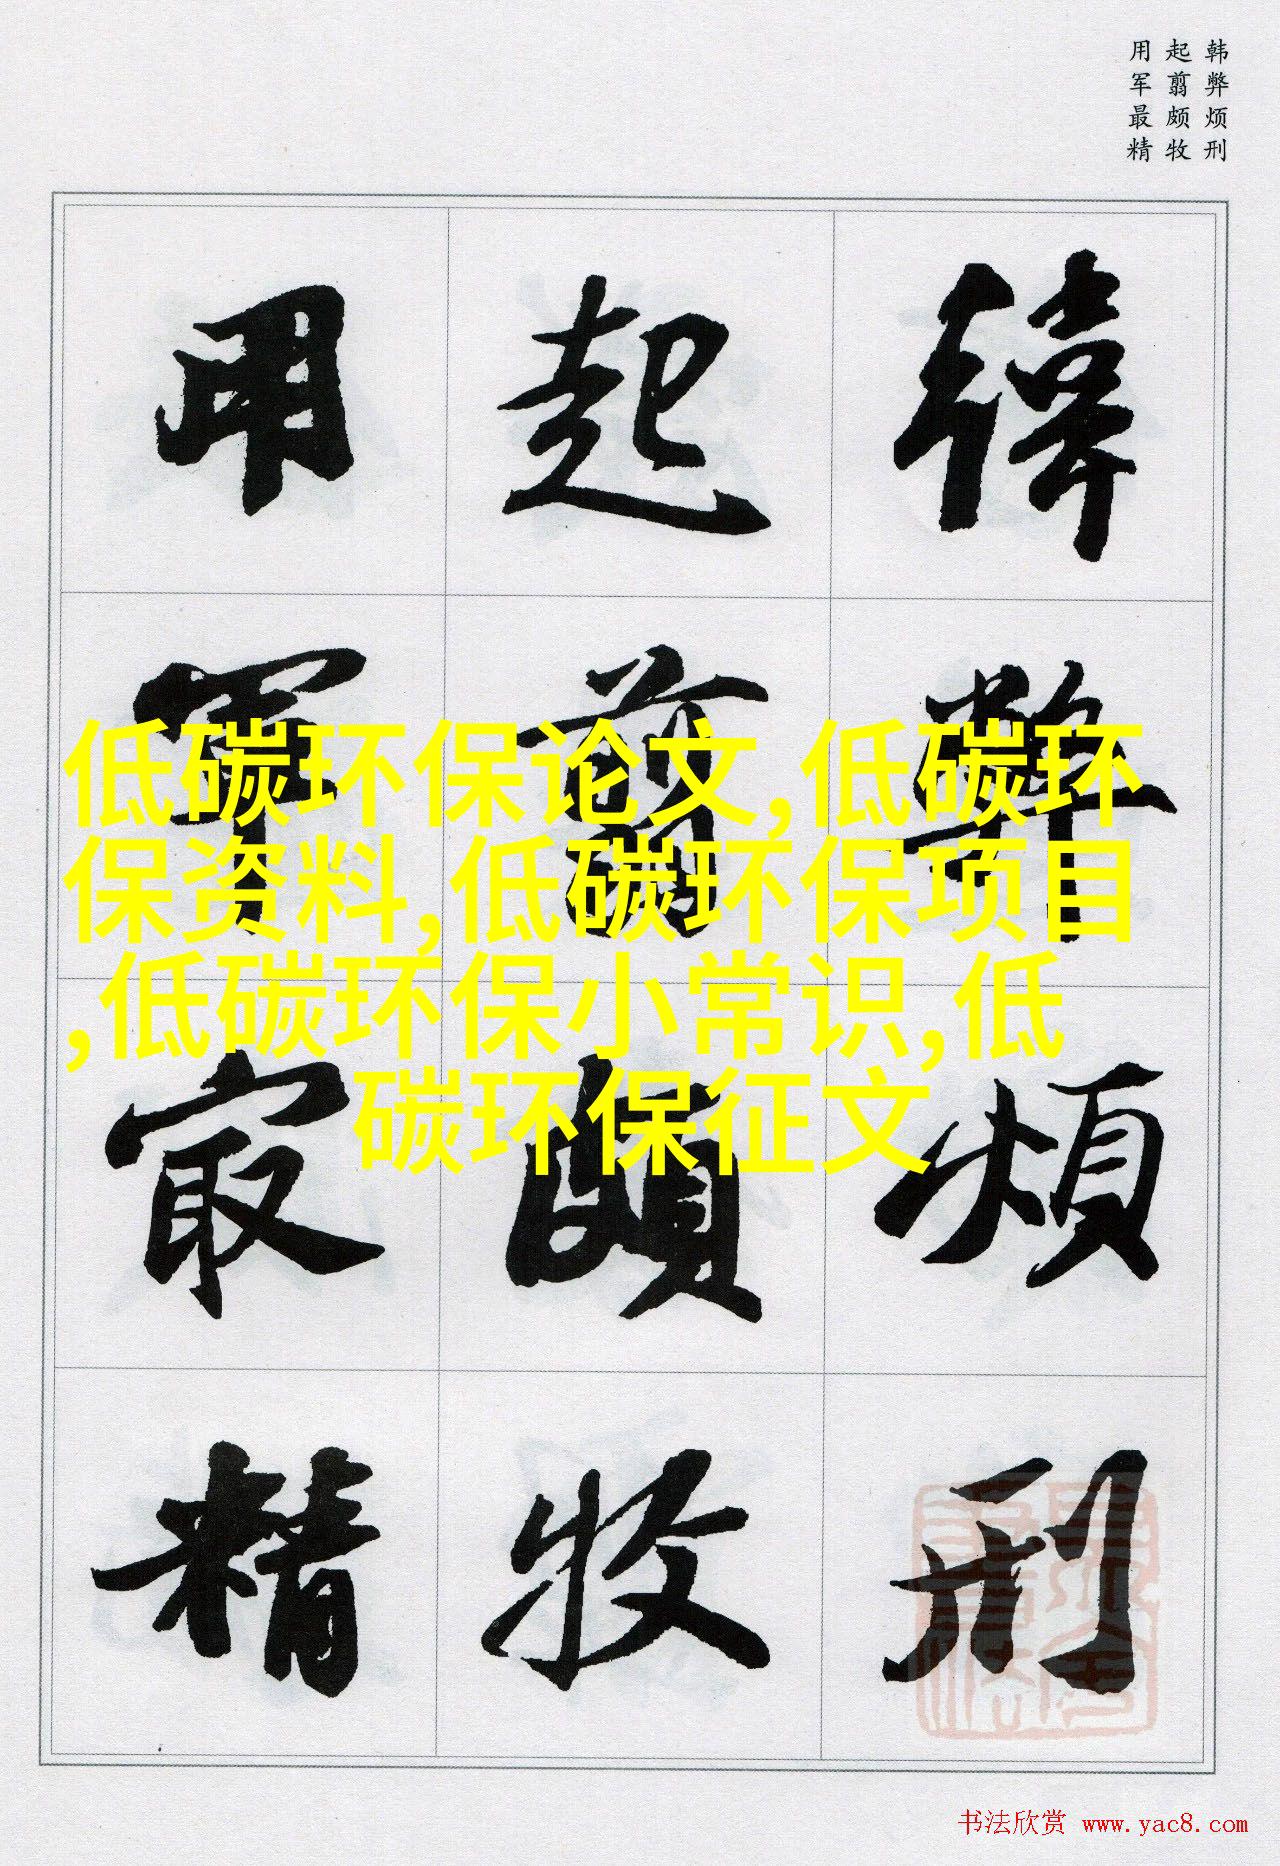 韩弊烦刑
起翦颇牧
用军最精
韓弊煩刑
起翦頗牧
用軍最精
低碳环保论文,低碳环
保资料,低碳环保项目
,低碳环保小常识,低
碳环保征文
书法欣赏 www.yac8.com